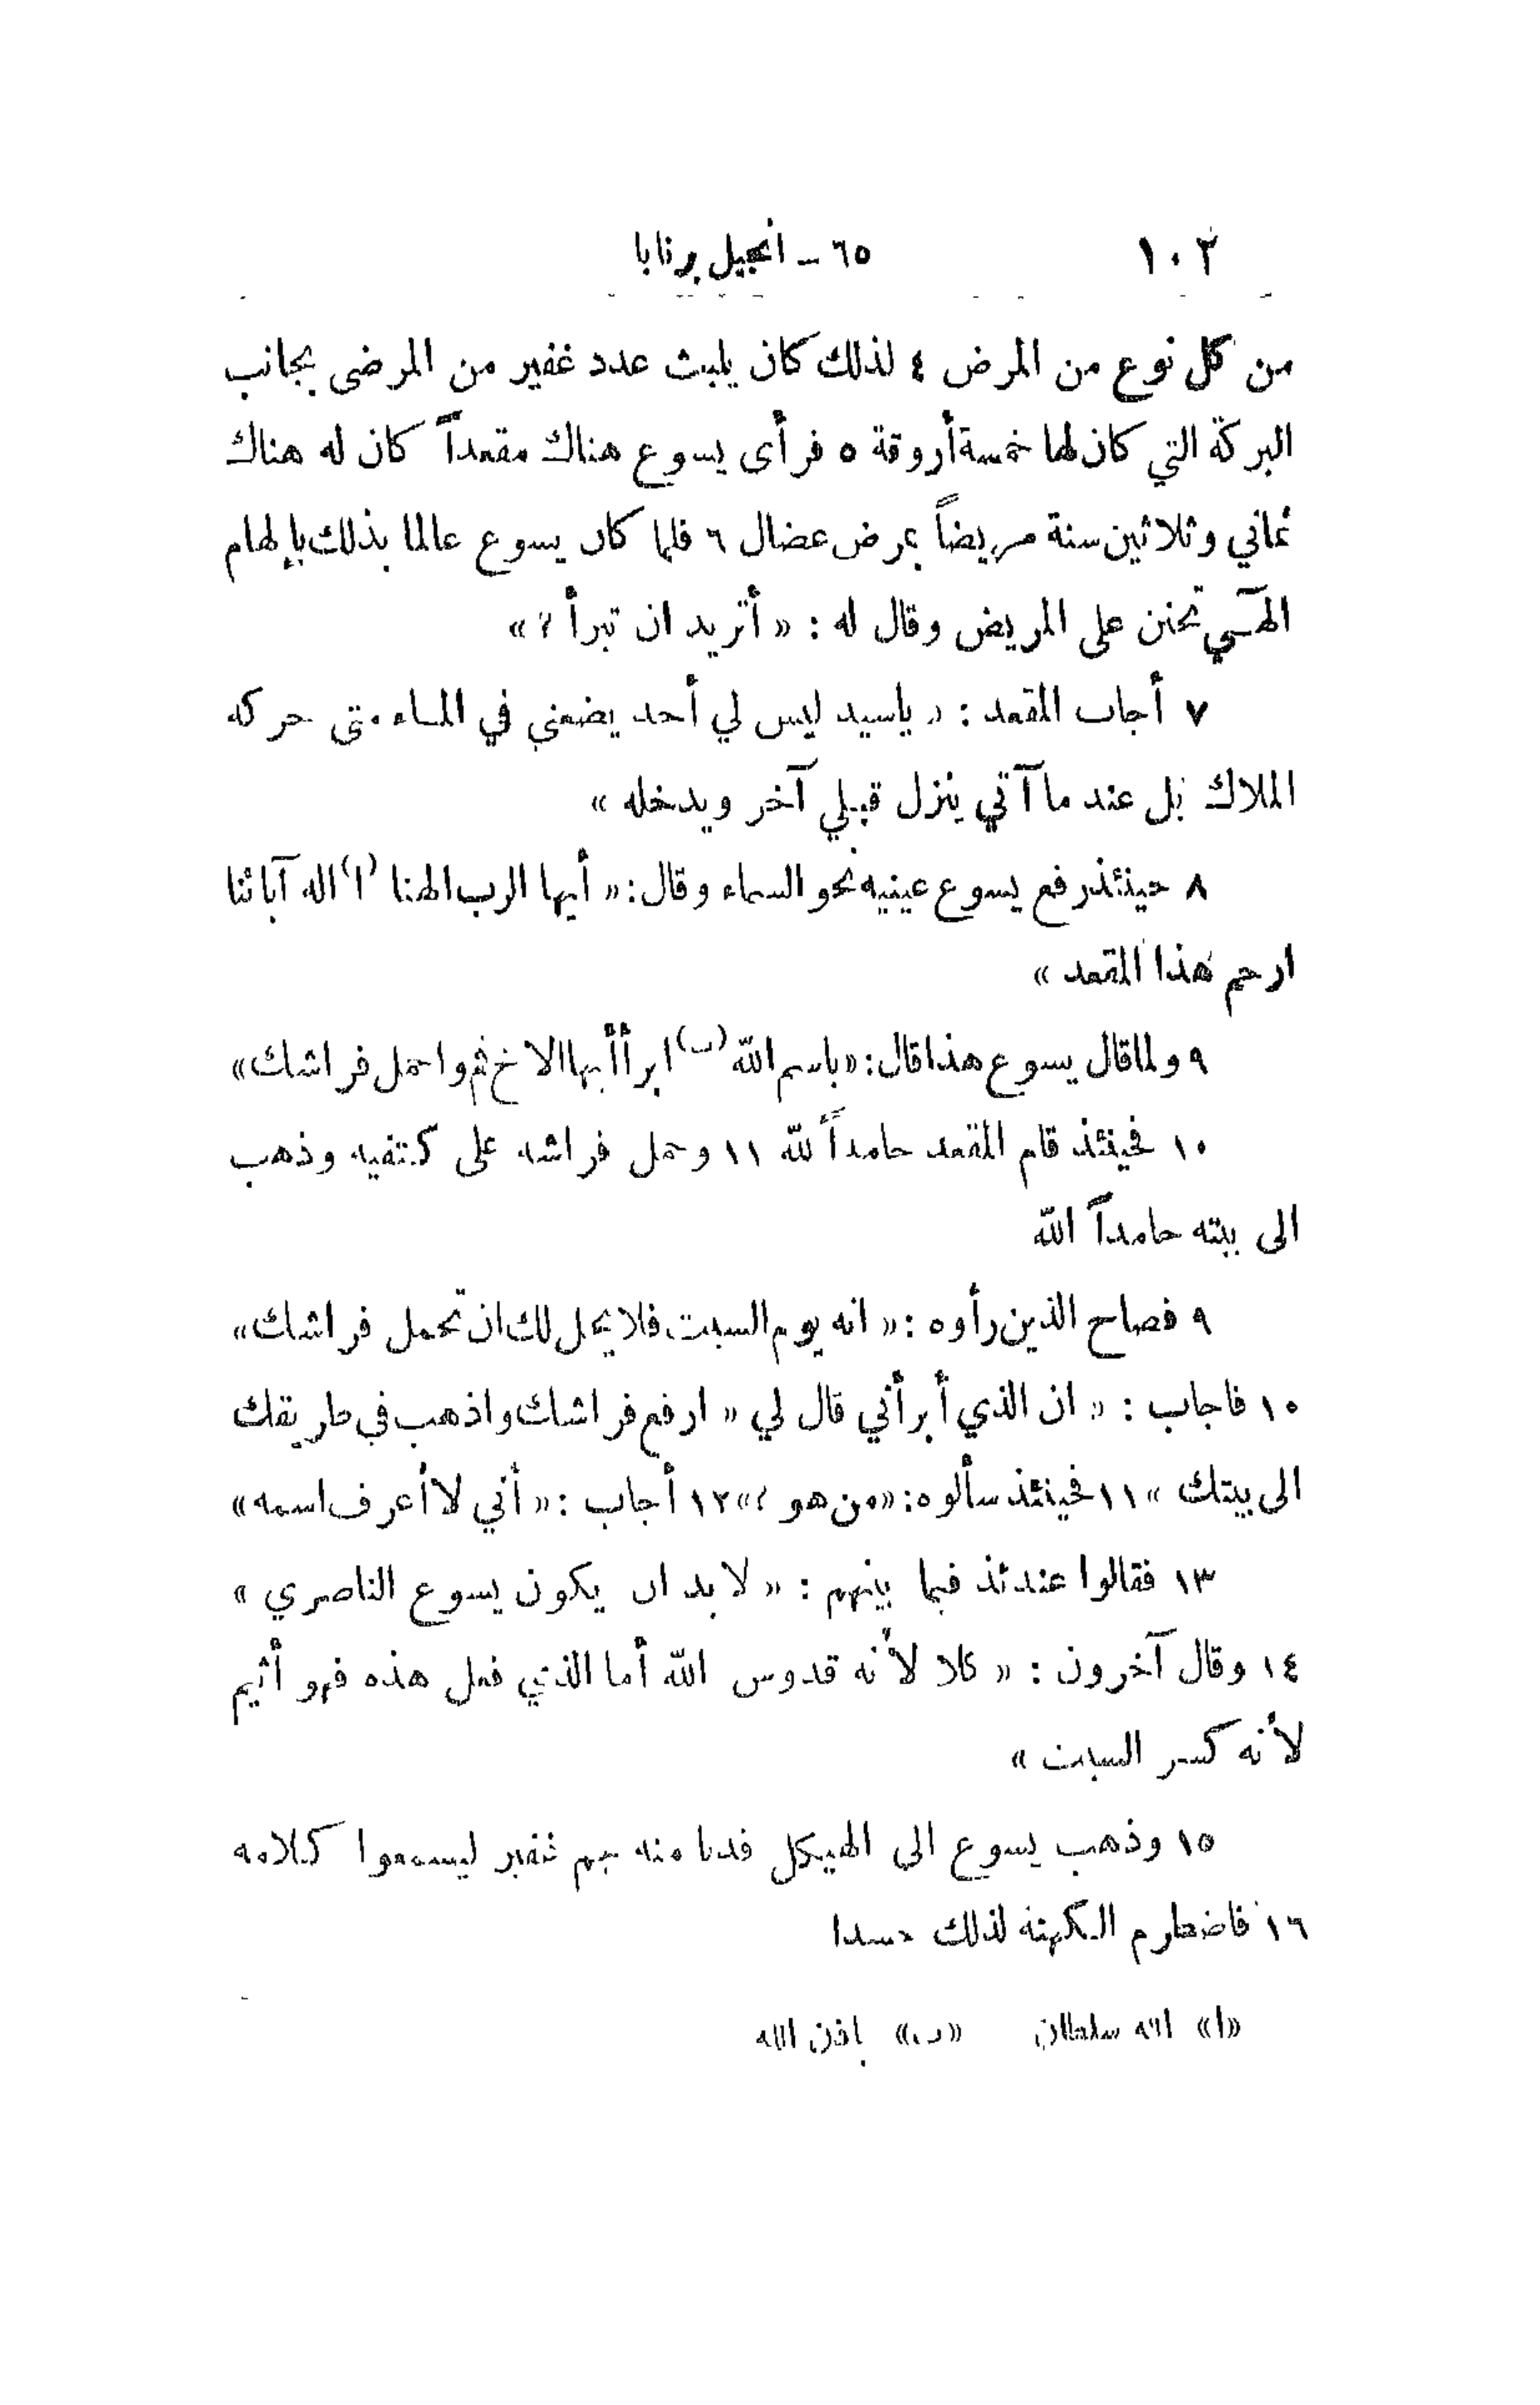 ١٠٢ ٦٥ – انجيل برنابا
من كل نوع من المرض ٤ لذلك كان يلبث عدد غفير من المرضى بجانب
البركة التي كان لها خمسة أروقة ٥ فرأى يسوع هناك مقعداً كان له هناك
ثماني وثلاثين سنة مريضاً بمرض عضال ٦ فلما كان يسوع عالما بذلك بإلهام
الهي تحنن على المريض وقال له : « أتريد ان تبرأ ؟ »
٧ أجاب المقعد : « ياسيد ليس لي أحد يضعني في الماء متى حركه
الملاك بل عند ما آتي ينزل قبلي آخر ويدخله »
٨ حينئذ رفع يسوع عينيه نحو السماء وقال : « أيها الرب الهنا (ا) اله آبائنا
ارحم هذا المقعد »
٩ ولما قال يسوع هذا قال : « باسم الله (ب) ابرأ أيها الاخ قم واحمل فراشك »
١٠ فحينئذ قام المقعد حامداً لله ١١ وحمل فراشه على كتفيه وذهب
الى بيته حامداً الله
٩ فصاح الذين رأوه : « انه يوم السبت فلا يحل لك ان تحمل فراشك »
١٠ فاجاب : « ان الذي أبرأني قال لي « ارفع فراشك واذهب في طريقك
الى بيتك » ١١ فحينئذ سألوه : « من هو ؟ » ١٢ أجاب : « أني لا أعرف اسمه »
١٣ فقالوا عندئذ فيما بينهم : « لا بد ان يكون يسوع الناصري »
١٤ وقال آخرون : « كلا لأنه قدوس الله أما الذي فعل هذه فهو أثيم
لأنه كسر السبت »
١٥ وذهب يسوع الى الهيكل فدنا منه جم غفير ليسمعوا كلامه
١٦ فاضطرم الكهنة لذلك حسدا
«ا» الله سلطان «ب» باذن الله